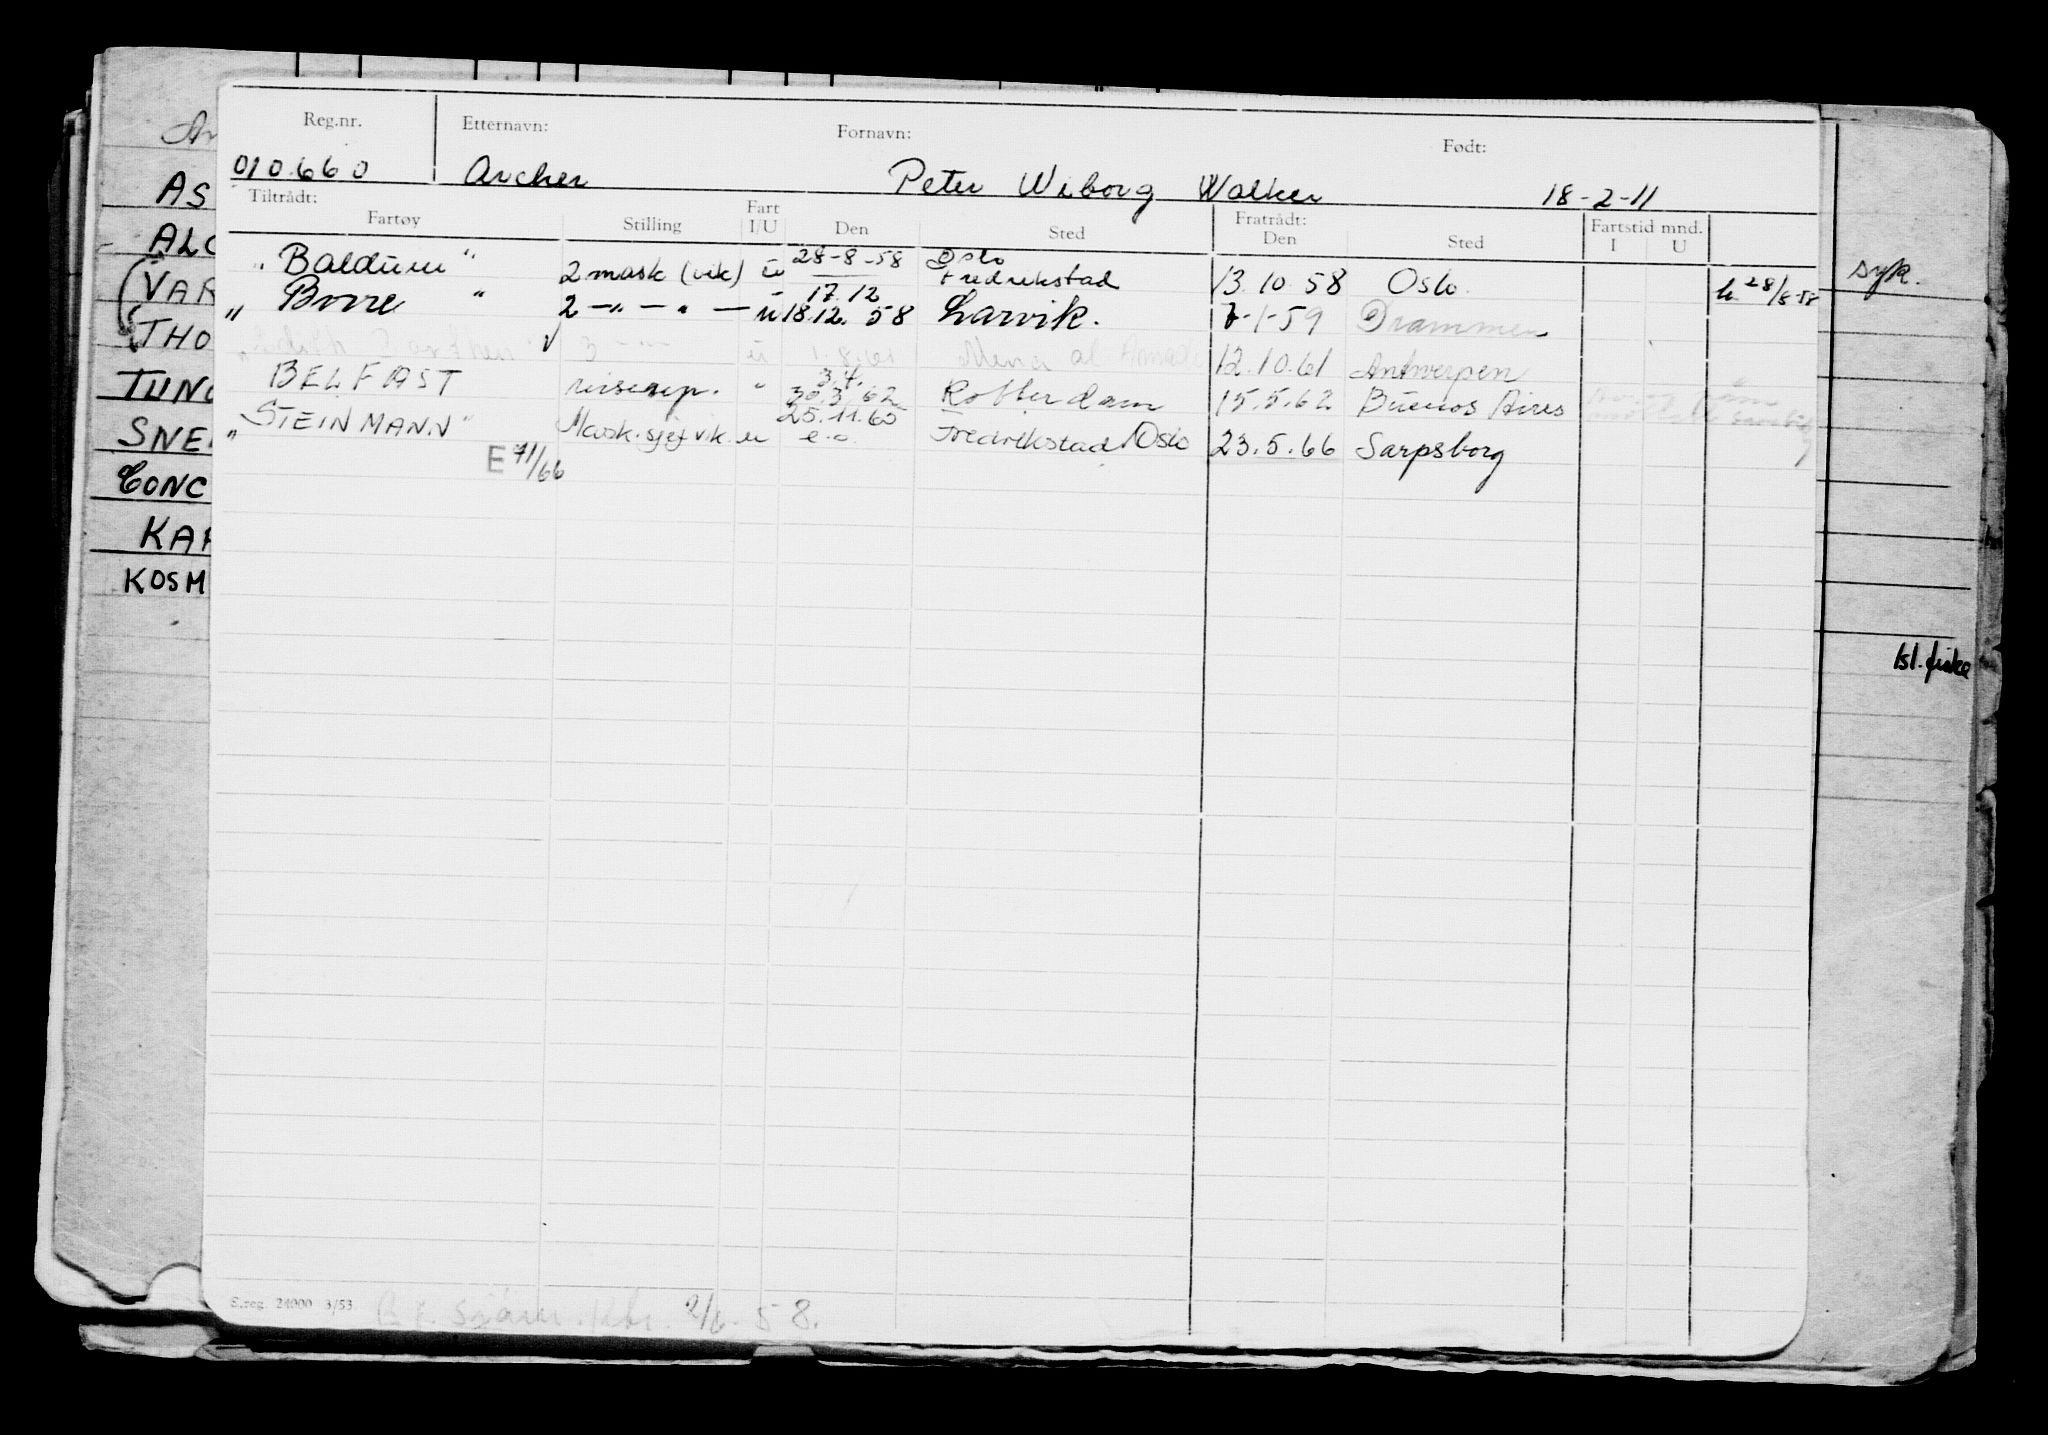 Reg.nr. Etternavn: Fornavn: Født:
010660 Archer Peter Wiborg Walker 18-2-11
Tiltrådt: Fratrådt:
Fartøy Stilling Fart I/U Den Sted Den Sted Fartstid mnd. I U
28-8-58 Oslo
"Balduin" 2 mask (vik) u 17.12 Fredrikstad 13.10.58 Oslo h 28/8-58
"Borre" 2 -"- " - u 18.12.58 Larvik. 7-1-59 Drammen
3 -"- u 1.8.61 Mena al 12.10.61 Antwerpen
3.4.
BELFAST reiserep. " 30.3.62 Rotterdam 15.5.62 Buenos Aires
25.11.65
"STEINMANN" Mask.sjef vik. u e.o. Fredrikstad/Oslo 23.5.66 Sarpsborg
E 71/66
AS
ALC
(VAR
THO
TUNG
SNE
CONC
KAR
KOSM
syk.
Isl. fiske
S.reg. 24000 3/53 2/6. 58.